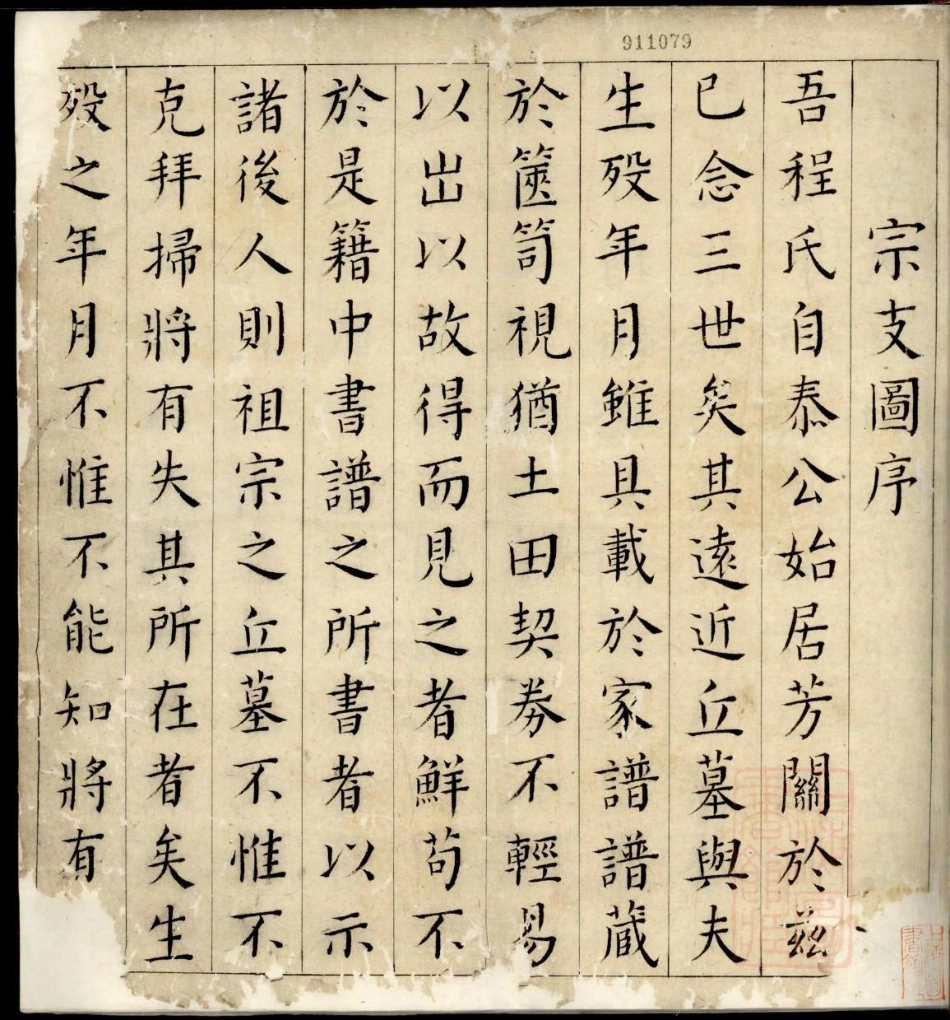 911079
宗支圖序
吾程氏自泰公始居芳關於茲
已念三世矣其遠近丘墓與夫
生歿年月雖具載於家譜譜蔵
於篋笥視猶土田契券不輕易
以出以故得而見之者鮮苟不
於是籍中書譜之所書者以示
諸後人則祖宗之丘墓不惟不
克拜掃將有失其所在者矣生
歿之年月不惟不能知將有